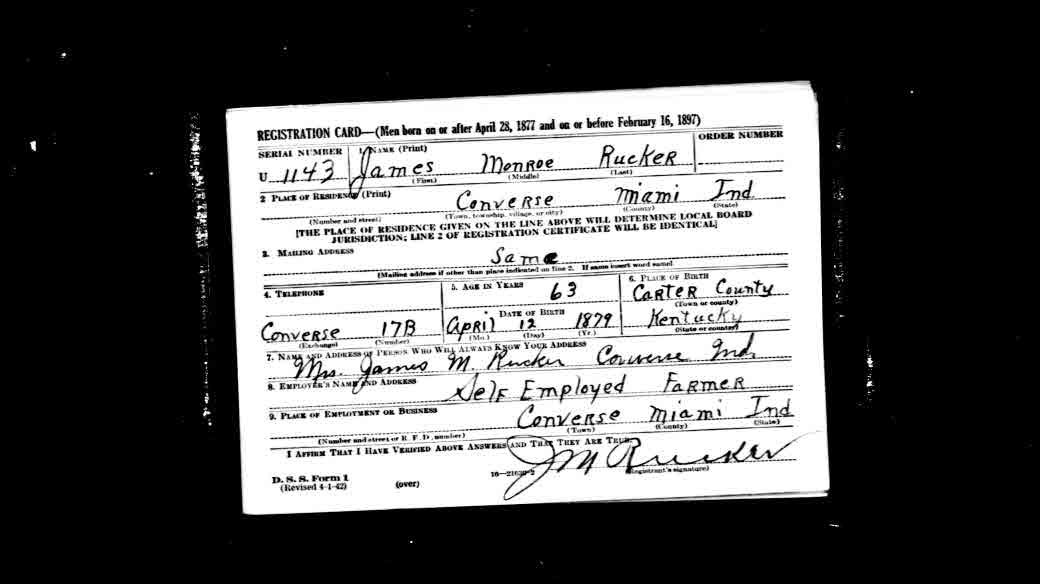 REGISTRATION CARD—(Men born on or after April 28, 1877 and on or before February 16, 1897)
SERIAL NUMBER 1. NAME (Print) ORDER NUMBER
U 1143 James Monroe Rucker
(First) (Middle) (Last)
2 PLACE OF RESIDENCE (Print)
Converse Miami Ind
(Number and street) (Town, township, village, or city) (County) (State)
[THE PLACE OF RESIDENCE GIVEN ON THE LINE ABOVE WILL DETERMINE LOCAL BOARD
JURISDICTION; LINE 2 OF REGISTRATION CERTIFICATE WILL BE IDENTICAL]
3. MAILING ADDRESS
Same
[Mailing address if other than place indicated on line 2. If same insert word same]
4. TELEPHONE 5. AGE IN YEARS 6. PLACE OF BIRTH
63 Carter County
(Town or county)
DATE OF BIRTH
Converse 17B April 12 1879 Kentucky
(Exchange) (Number) (Mo.) (Day) (Yr.) (State or country)
7. NAME AND ADDRESS OF PERSON WHO WILL ALWAYS KNOW YOUR ADDRESS
Mrs. James M. Rucker Converse Ind.
8. EMPLOYER'S NAME AND ADDRESS
Self Employed Farmer
9. PLACE OF EMPLOYMENT OR BUSINESS
Converse Miami Ind
(Number and street or R. F. D. number) (Town) (County) (State)
I AFFIRM THAT I HAVE VERIFIED ABOVE ANSWERS AND THAT THEY ARE TRUE.
J M Rucker
D. S. S. Form 1 16—21630-2 (Registrant's signature)
(Revised 4-1-42) (over)